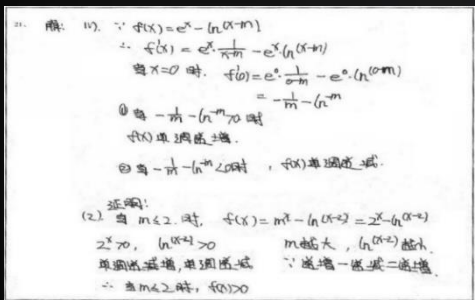 21. 解: (1). ∵ f(x)=e^x-ln^(x-m)
∴ f'(x) = e^x·1/(x-m) - e^x·ln^(x-m)
当x=0 时. f'(0)=e^0·1/(0-m) - e^0·ln^(0-m)
= -1/m - ln^-m
① 当 -1/m - ln^-m>0 时
f(x)单调递增.
② 当 -1/m - ln^-m<0时 , f(x)单调递减.
证明:
(2.) 当 m≤2. 时, f(x)=m^x - ln^(x-2) = 2^x - ln^(x-2)
2^x>0, ln^(x-2)>0 m越大, ln^(x-2)越小.
单调递增, 单调递减 ∵ 递增-递减=递增.
∴ 当m≤2时, f(x)>0